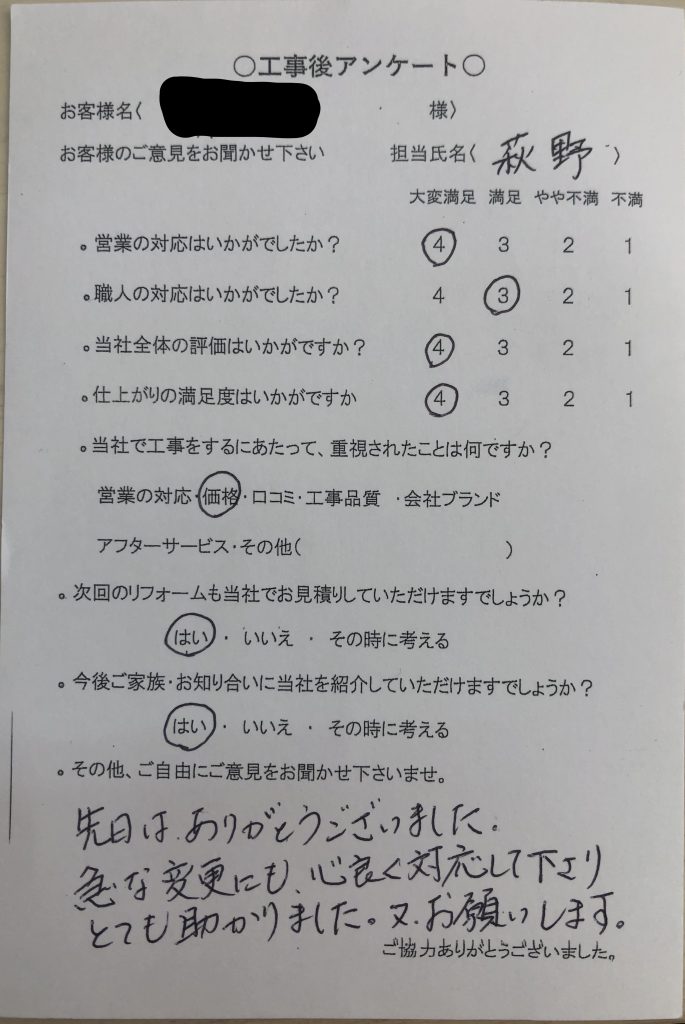 〇工事後アンケート〇
お客様名〈 様〉
お客様のご意見をお聞かせ下さい 担当氏名〈 萩野 〉
大変満足 満足 やや不満 不満
。営業の対応はいかがでしたか？ 4 3 2 1
。職人の対応はいかがでしたか？ 4 3 2 1
。当社全体の評価はいかがですか？ 4 3 2 1
。仕上がりの満足度はいかがですか 4 3 2 1
。当社で工事をするにあたって、重視されたことは何ですか？
営業の対応・価格・口コミ・工事品質 ・会社ブランド
アフターサービス・その他( )
。次回のリフォームも当社でお見積りしていただけますでしょうか？
はい ・ いいえ ・ その時に考える
。今後ご家族・お知り合いに当社を紹介していただけますでしょうか？
はい ・ いいえ ・ その時に考える
。その他、ご自由にご意見をお聞かせ下さいませ。
先日は、ありがとうございました。
急な変更にも、心良く対応して下さり
とても助かりました。又、お願いします。
ご協力ありがとうございました。